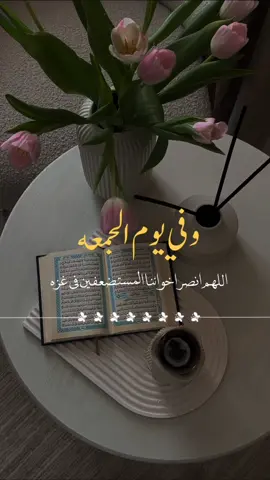 وفي يوم الجمعه
اللهم انصر اخواننا المستضعفين في غزه